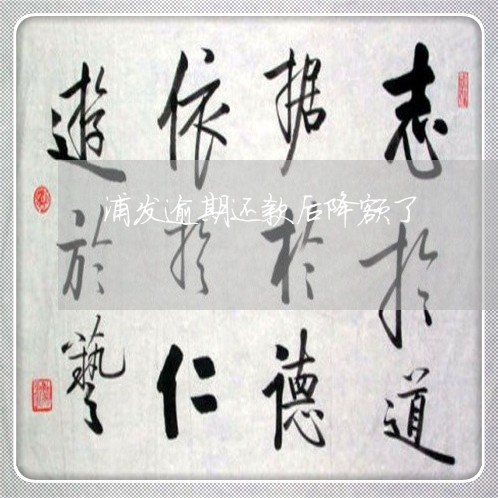 志於道
据於德
依於仁
遊於藝
浦发逾期还款后降额了